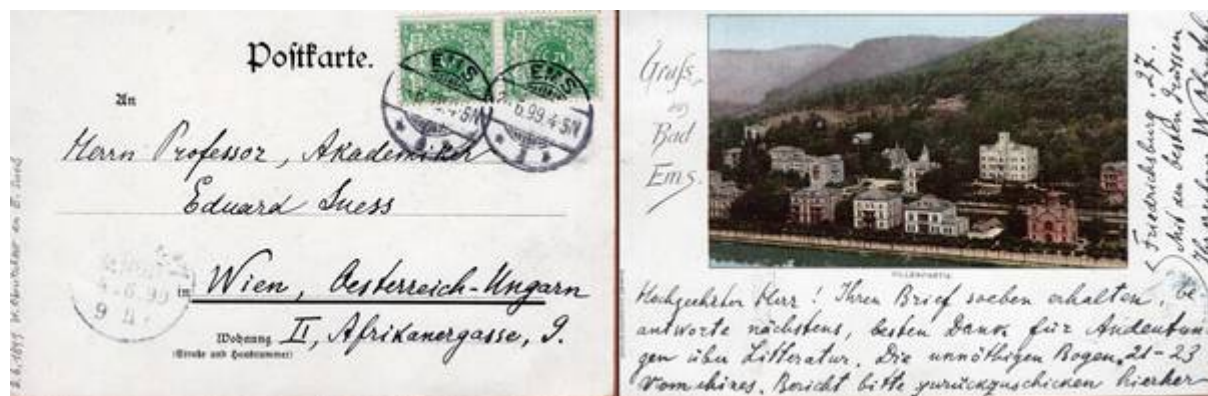 Postkarte.
EMS
6.99.4-5N
EMS
6.99.4-5N
An
Herrn Professor, Akademiker
Eduard Suess
in Wien, Oesterreich-Ungarn
Wohnung II, Afrikanergasse, 9.
(Straße und Hausnummer)
Gruss
aus
Bad
Ems.
VILLENPARTIE
Hochgeehrter Herr! Ihren Brief soeben erhalten, be
antworte nächstens, besten Dank für Andeutun
gen über Litteratur. Die unnöthigen Bogen 21-23
vom chines. Bericht bitte zurückzuschicken hierher
Friedrichsburg, 27.
Mit den besten Grüssen